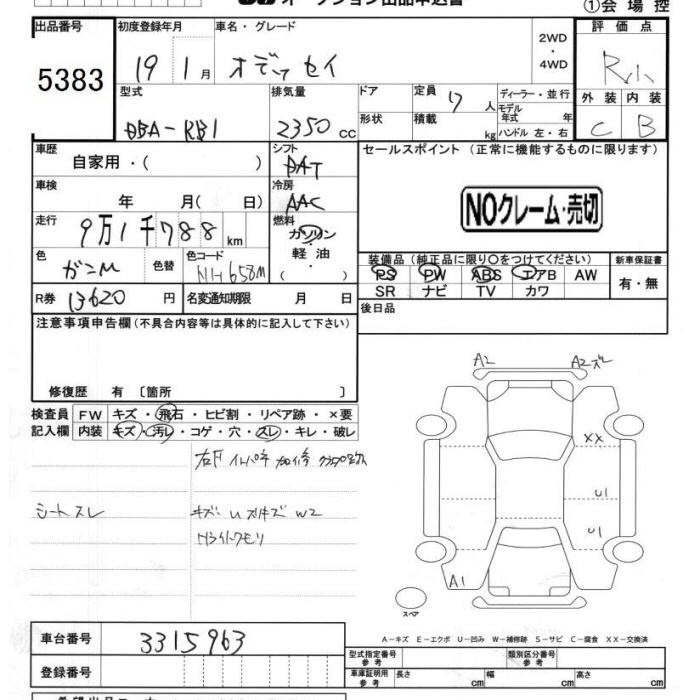 オークション出品申込書
①会場控
出品番号 初度登録年月 車名・グレード 2WD・4WD 評価点
5383 19 1月 オデッセイ
型式 排気量 ドア 定員 7人 ディーラー・並行 外装 内装
DBA-RB1 2350cc 形状 積載 kg モデル年式 年 ハンドル 左・右 C B
車歴 シフト セールスポイント(正常に機能するものに限ります)
自家用・( ) DAT
車検 年 月( 日) 冷房 AAC
NOクレーム・売切
走行 9万1千788km 燃料 ガソリン・軽油・( )
色 ガンM 色替 色コード NH658M
装備品(純正品に限り〇をつけてください) 新車保証書
PS PW ABS エアB AW 有・無
SR ナビ TV カワ
R券 13620円 名変通知期限 月 日 後日品
注意事項申告欄(不具合内容等は具体的に記入して下さい)
修復歴 有 〔箇所 〕
検査員 FW キズ・飛石・ヒビ割・リペア跡・×要
記入欄 内装 キズ・汚レ・コゲ・穴・スレ・キレ・破レ
シートスレ
キズ・U スリキズ W2
Hライトクモリ
A2 A2ズレ
XX
U1
U1
A1
スペア
A-キズ E-エクボ U-凹み W-補修跡 S-サビ C-腐食 XX-交換済
車台番号 3315963
登録番号
型式指定番号 参考 類別区分番号 参考
車庫証明用 参考 長さ cm 幅 cm 高さ cm